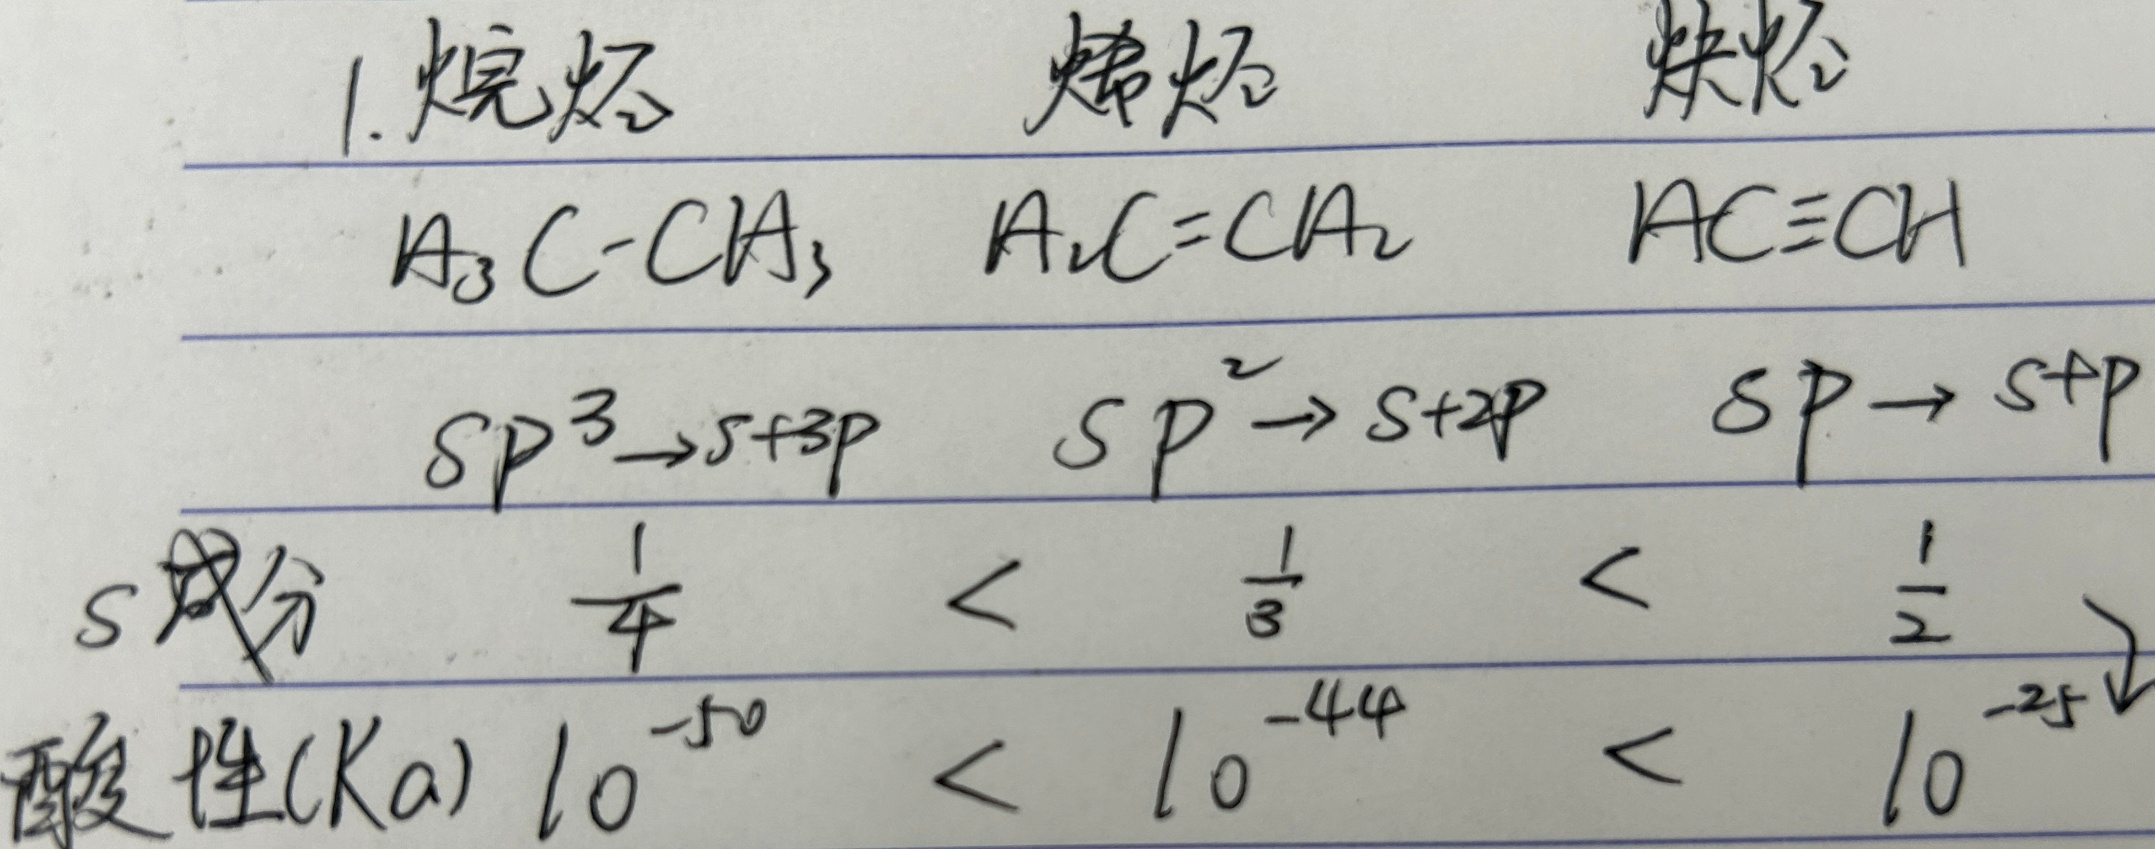 1. 烷烃 烯烃 炔烃
H₃C-CH₃ H₂C=CH₂ HC≡CH
sp³→s+3p sp²→s+2p sp→s+p
s成分 1/4 < 1/3 < 1/2
酸性(Ka) 10⁻⁵⁰ < 10⁻⁴⁴ < 10⁻²⁵